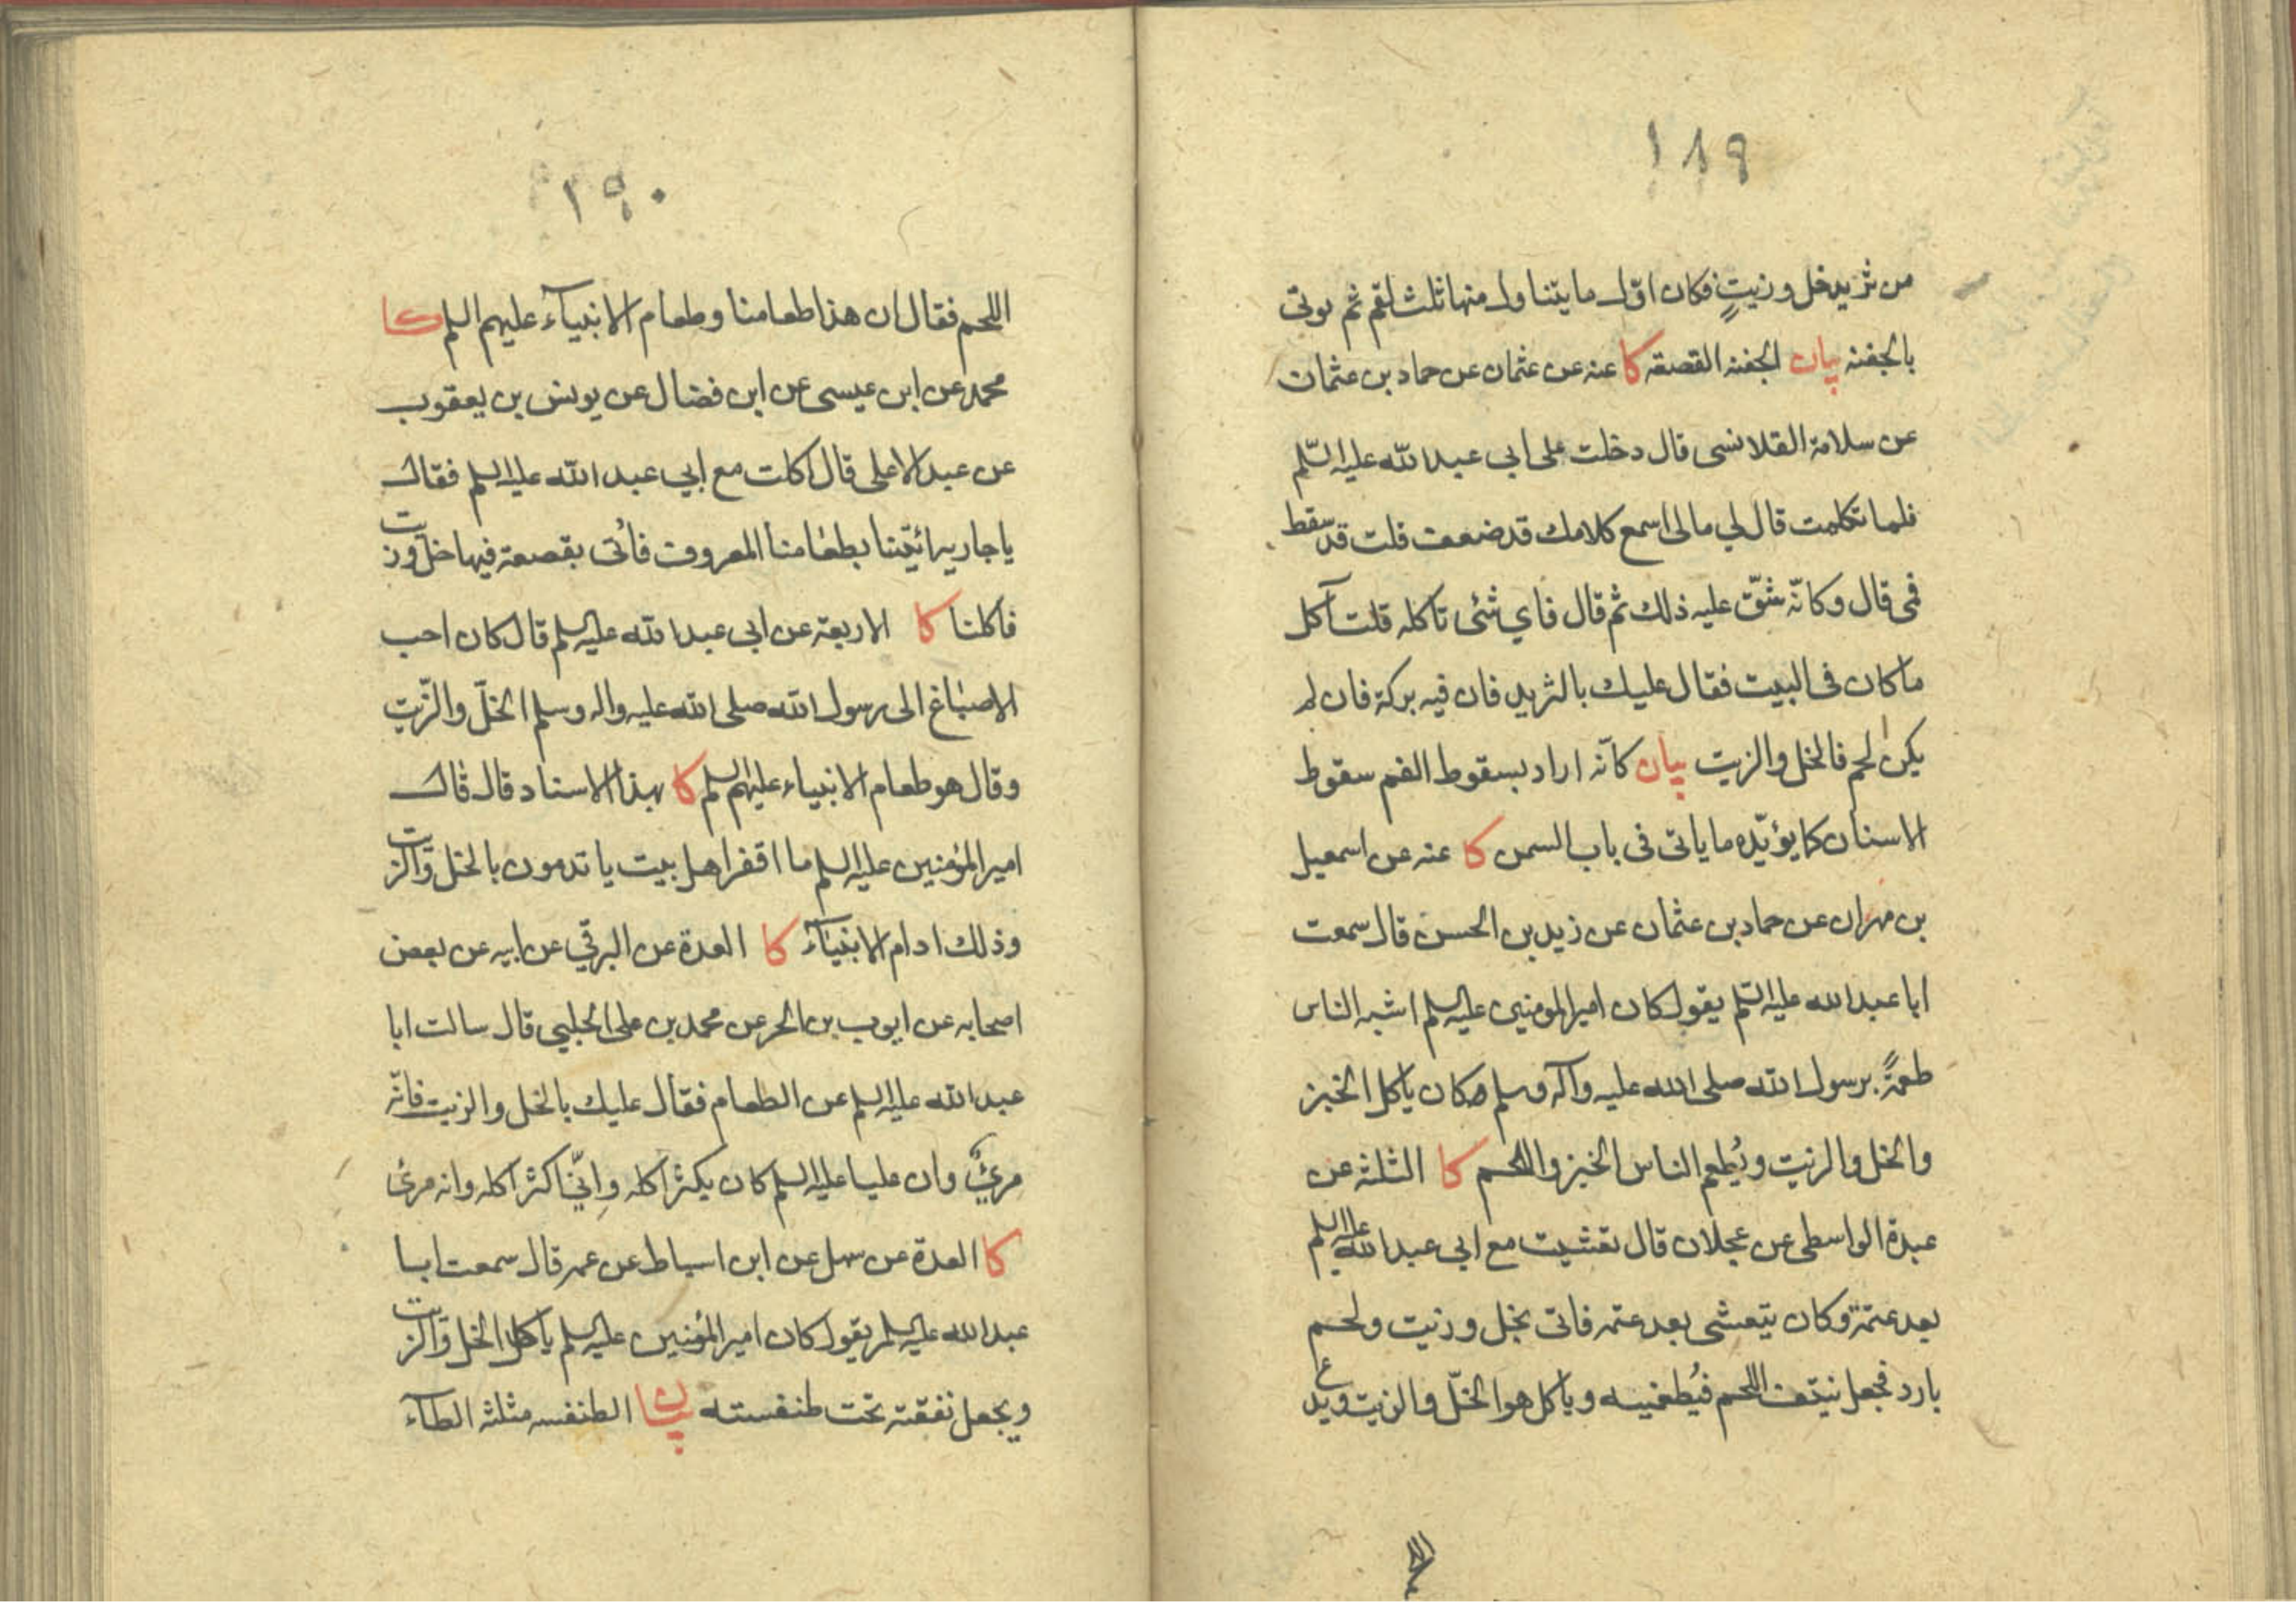 ١٨٩
من ثريد خل وزيتٍ فكان اوّل ما يتناول منها ثلث لقم ثم يوتى
بالجفنه بيان الجفنه القصعة كا عنه عن عثمان عن حماد بن عثمان
عن سلامة القلانسى قال دخلت على ابى عبد الله عليه السّلم
فلما تكلمت قال لي مالى اسمع كلامك قد ضعف قلت قد سقط
فمى قال وكانّه شقّ عليه ذلك ثم قال فاي شئى تاكله قلت آكل
ما كان فى البيت فقال عليك بالثريد فان فيه بركة فان لم
يكن لحم فالخل والزيت بيان كانّه اراد بسقوط الفم سقوط
الاسنان كما يؤيّده ما ياتى فى باب السمن كا عنه عن اسمعيل
بن مهران عن حماد بن عثمان عن زيد بن الحسن قال سمعت
ابا عبد الله عليه السّلم يقول كان امير المومنين عليه السلم اشبه الناس
طعمةً برسول الله صلى الله عليه وآله وسلم كان ياكل الخبز
والخل والزيت ويُطعم الناس الخبز واللحم كا الثلثة عن
عبدة الواسطى عن عجلان قال تعشيت مع ابى عبد الله عليه السلم
بعد عتمة وكان يتعشى بعد عتمه فاتى بخل وزيت ولحم
بارد فجعل ينتف اللحم فيُطعمنيه وياكل هو الخلّ والزيت ويدع
١٩٠
اللحم فقال ان هذا طعامنا وطعام الانبيآء عليهم السلم كا
محمد عن ابن عيسى عن ابن فضال عن يونس بن يعقوب
عن عبد الاعلى قال اكلت مع ابي عبد الله عليه السلم فقال
يا جاريه ائتينا بطعامنا المعروف فاُتى بقصعة فيها خل وزيت
فاكلنا كا الاربعة عن ابى عبد الله عليه السلم قال كان احب
الاصباغ الى رسول الله صلى الله عليه واله وسلم الخلّ والزّيت
وقال هو طعام الانبياء عليهم السلم كا بهذا الاسناد قال قال
امير المؤمنين عليه السلم ما اقفر اهل بيت ياتدمون بالخل والزيت
وذلك ادام الانبيآء كا العدة عن البرقي عن ابيه عن بعض
اصحابه عن ايوب بن الحر عن محمد بن على الحلبي قال سالت ابا
عبد الله عليه السلم عن الطعام فقال عليك بالخل والزيت فانّه
مرئ وان عليا عليه السلم كان يكثر اكله وانّي اكثر اكله وانه مرئ
كا العدة عن سهل عن ابن اسباط عن عمه قال سمعت ابا
عبد الله عليه السلم يقول كان امير المؤمنين عليه السلم ياكل الخل والزيت
ويجعل نفقته تحت طنفسته بيان الطنفسه مثلثه الطآء